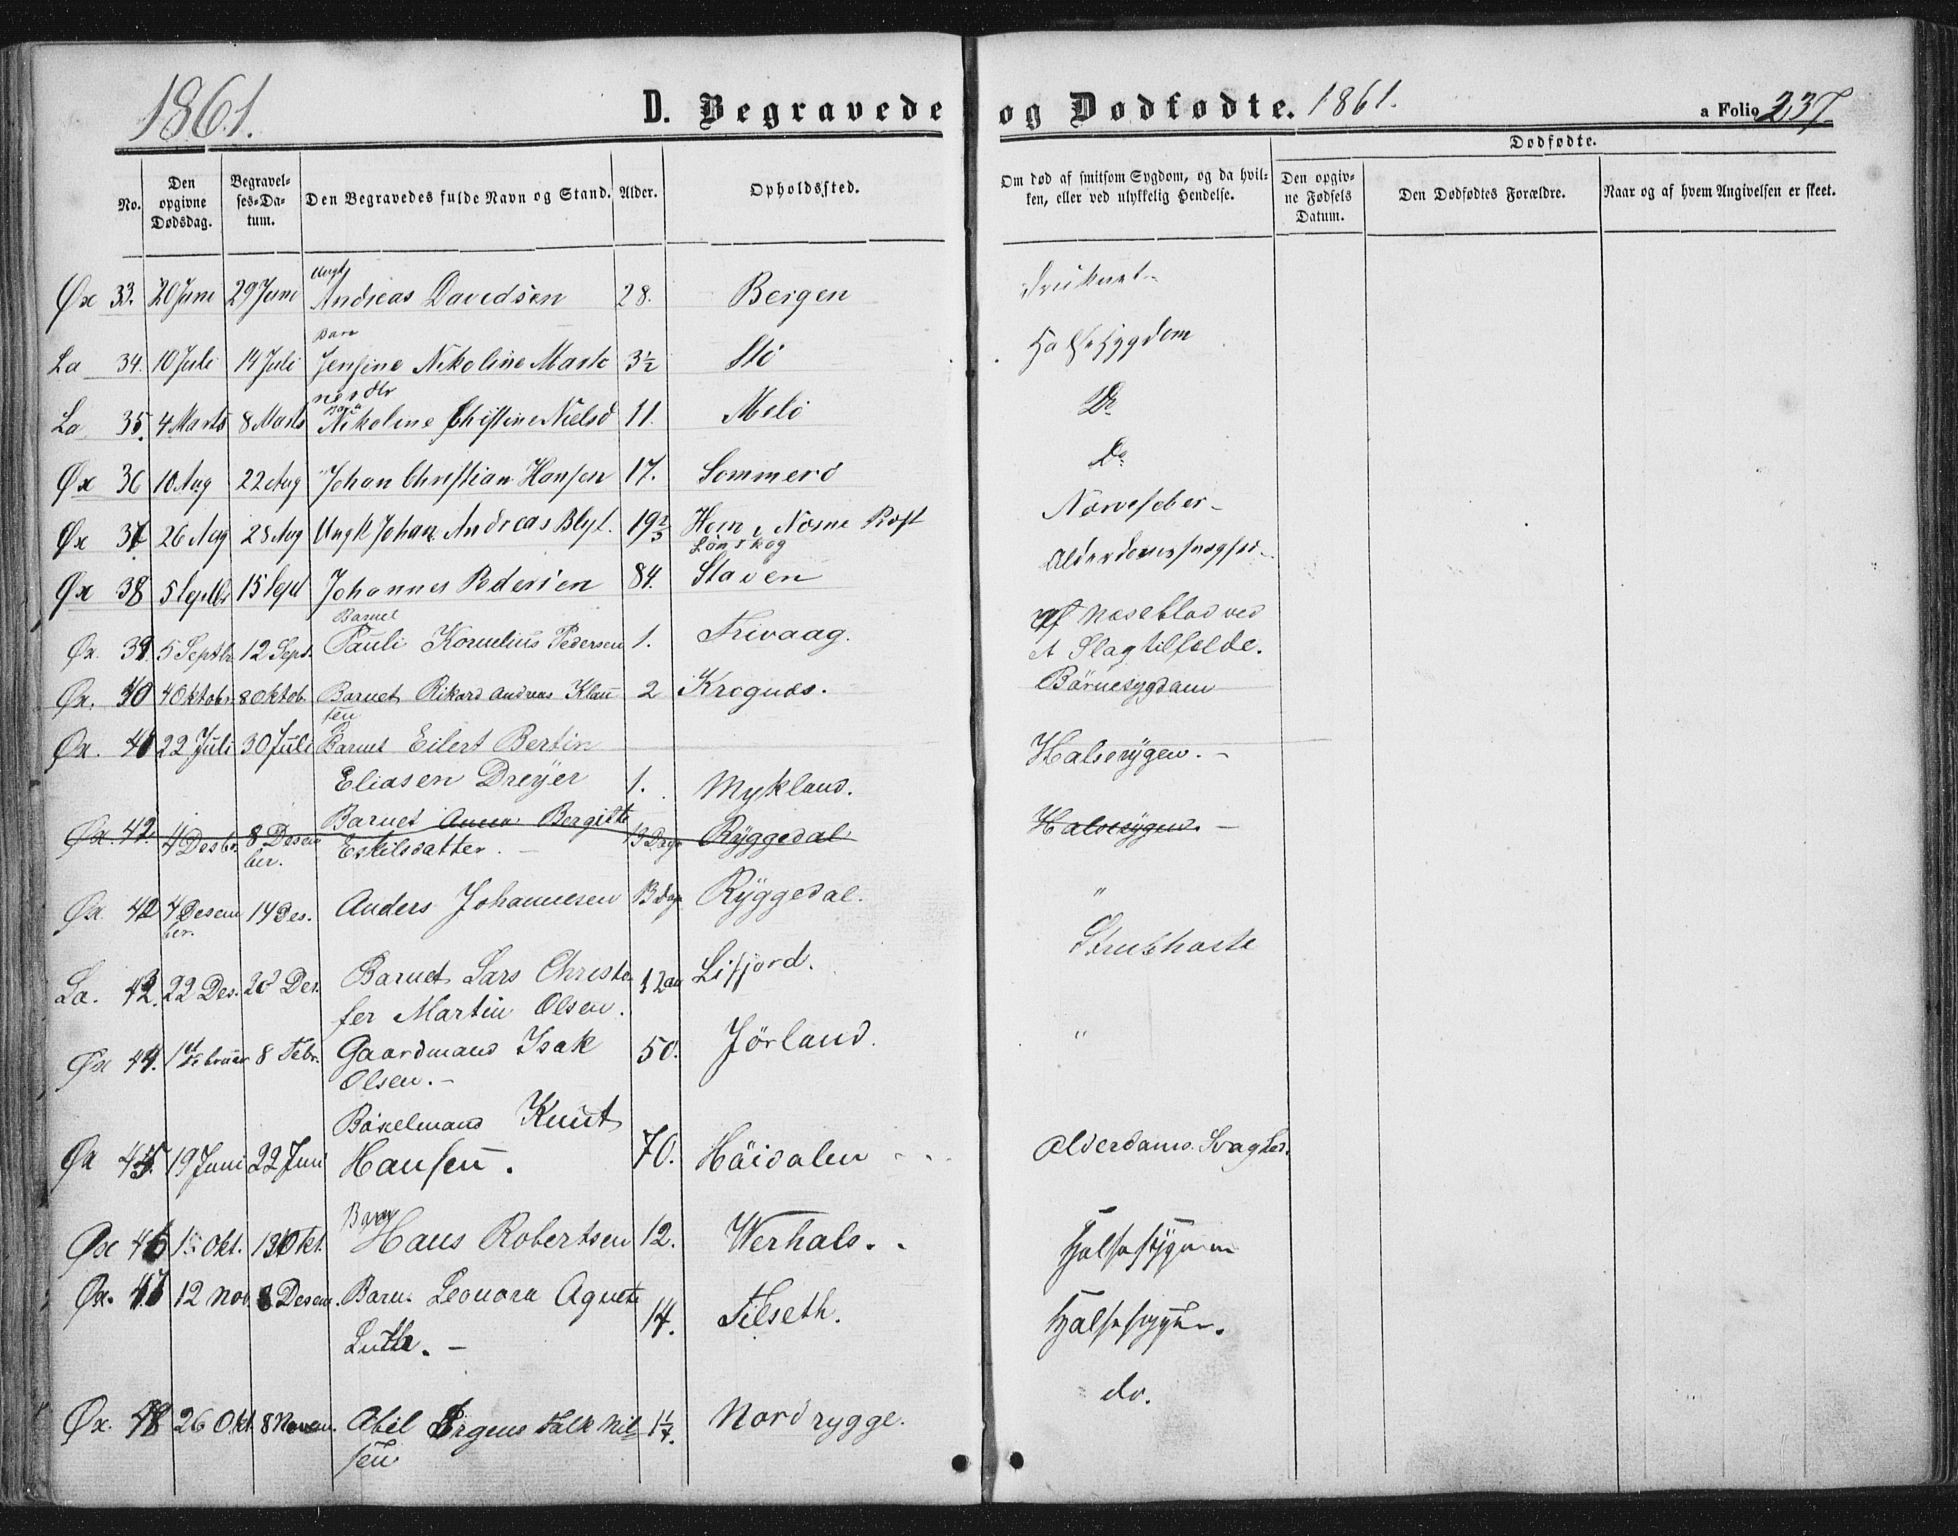 1861.
D. Begravede og Dødfødte. 1861.
a Folio 237.
No.
Den opgivne Dødsdag.
Begravelses-Datum.
Den Begravedes fulde Navn og Stand.
Alder.
Opholdssted.
Om død af smitsom Sygdom, og da hvilken, eller ved ulykkelig Hendelse.
Dødfødte.
Den opgivne Fødsels Datum.
Den Dødfødtes Forældre.
Naar og af hvem Angivelsen er skeet.
Øx 33. 20 Juni 29 Juni Ungk Andreas Davidsen 28. Bergen Druknet
La 34. 10 Juli 14 Juli Barn Jensine Nikoline Marte 3½ Stö Halssygdom
nesdtr
La 35. 4 Marts 8 Marts Barn Nikoline Christine Nielsd 11. Melö Do
Øx 36 10 Aug 22 Aug Johan Christian Hansen 17. Sommerö Do
Øx 37 26 Aug 28 Aug Ungk Johan Andreas Blyt. 19⅔ Nærvefeber
Øx 38 5 Septbr 15 Sept Johannes Pedersen 84. Staven Alderdomssvaghed
Øx. 39. 5 Septbr 12 Sept. Barnet Pauli Kornelius Pedersen 1. Frivaag. af Næseblod ved
et Slagtilfælde.
Øx. 40 4 Oktobr. 8 Oktob. Barnet Rikard Andreas Klau 2 Krognæs. Börnesygdom
sen
Øx. 41 22 Juli 30 Juli Barnet Eilert Bertin Halsesygen. -
Eliasen Dreÿer 1. Mykland.
Øx. 42. 4 Desbr. 8 Desember. Barnet Anna Bergitte 13 Dage Rÿggedal Halsesygen. -
Eskilsdatter. -
Øx. 42 4 Desember. 14 Des. Anders Johannesen 13 dage Rÿggedal. "
La. 43. 22 Des. Des. Barnet Lars Christo Lifjord. Strubhoste
fer Martin Olsen.
Øx 44. 1 Februar 8 Febr. Gaardmand Isak 50. Jörland. "
Olsen. -
Øx 45. 19 Juni 22 Juni Böxelmand Knut
Hansen. 70. Höidalen Alderdoms Svaghed.
Øx 46 Okt. 13 Okt. Barn Hans Robertsen 12. Werhals. Halsesÿgen
Øx. 47 12 Nov. 8 Desem. Barn. Leonora Agnete 14. Tilseth. Halsesygen.
Luth. -
Øx. 48 26 Okt. 8 Novem. Abel Örgens Falk Nil= Nordrygge. do.
sen